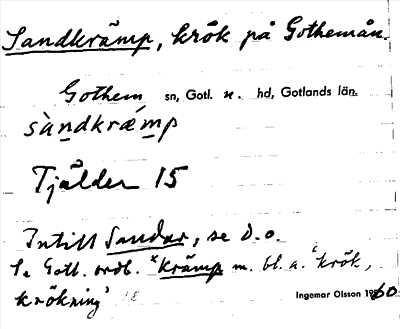 Sandkrämp, krök på Gothemån.
Gothem sn, Gotl. n. hd, Gotlands län.
sàndkræ´mp
Tjälder 15
Intill Sandar, se d.o.
Se Gotl. ordb. *krämp m. bl. a. 'krök,
krökning'
Ingemar Olsson 1960